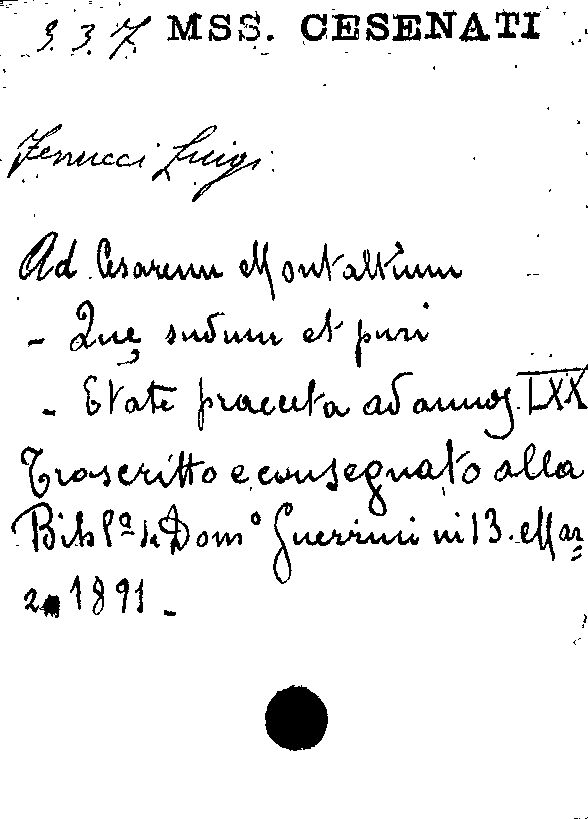 3.3.7 MSS. CESENATI
Ferrucci Luigi
Ad Cesarem Montaltium
- Quę sudum et puri
- Etate praecuta ad annos LXX
Trascritto e consegnato alla
Bibl.ª da Dom.º Guerrini in 13. Mar=
zo 1891 -